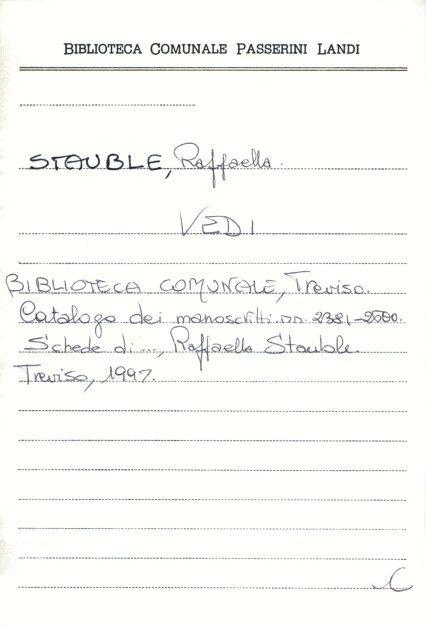 BIBLIOTECA COMUNALE PASSERINI LANDI
STAUBLE, Raffaella.
VEDI
BIBLIOTECA COMUNALE, Treviso.
Catalogo dei manoscritti. nn. 2381-2500.
Schede di ..., Raffaella Stauble.
Treviso, 1997.
C